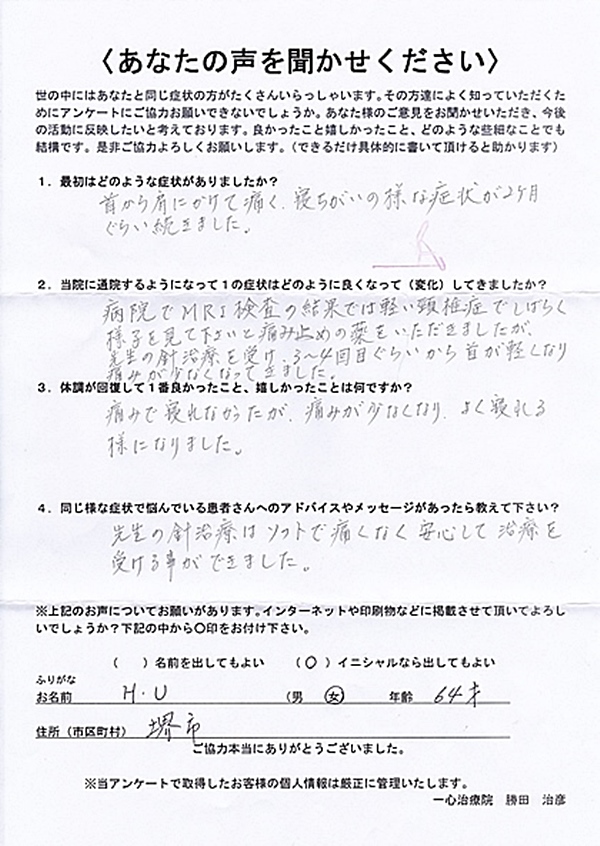 〈あなたの声を聞かせください〉
世の中にはあなたと同じ症状の方がたくさんいらっしゃいます。その方達によく知っていただくた
めにアンケートにご協力お願いできないでしょうか。あなた様のご意見をお聞かせいただき、今後
の活動に反映したいと考えております。良かったこと嬉しかったこと、どのような些細なことでも
結構です。是非ご協力よろしくお願いします。（できるだけ具体的に書いて頂けると助かります）
１．最初はどのような症状がありましたか？
首から肩にかけて痛く、寝ちがいの様な症状が2ケ月
ぐらい続きました。
２．当院に通院するようになって１の症状はどのように良くなって（変化）してきましたか？
病院でMRI検査の結果では軽い頸椎症でしばらく
様子を見て下さいと痛み止めの薬をいただきましたが、
先生の針治療を受け、3～4回目ぐらいから首が軽くなり
痛みが少なくなってきました。
３．体調が回復して１番良かったこと、嬉しかったことは何ですか？
痛みで寝れなかったが、痛みが少なくなり、よく寝れる
様になりました。
４．同じ様な症状で悩んでいる患者さんへのアドバイスやメッセージがあったら教えて下さい？
先生の針治療はソフトで痛くなく安心して治療を
受ける事ができました。
※上記のお声についてお願いがあります。インターネットや印刷物などに掲載させて頂いてよろし
いでしょうか？下記の中から〇印をお付け下さい。
（　）名前を出してもよい　（〇）イニシャルなら出してもよい
ふりがな
お名前　H・U　（男　女）　年齢　64才
住所（市区町村）　堺市
ご協力本当にありがとうございました。
※当アンケートで取得したお客様の個人情報は厳正に管理いたします。
一心治療院　勝田　治彦